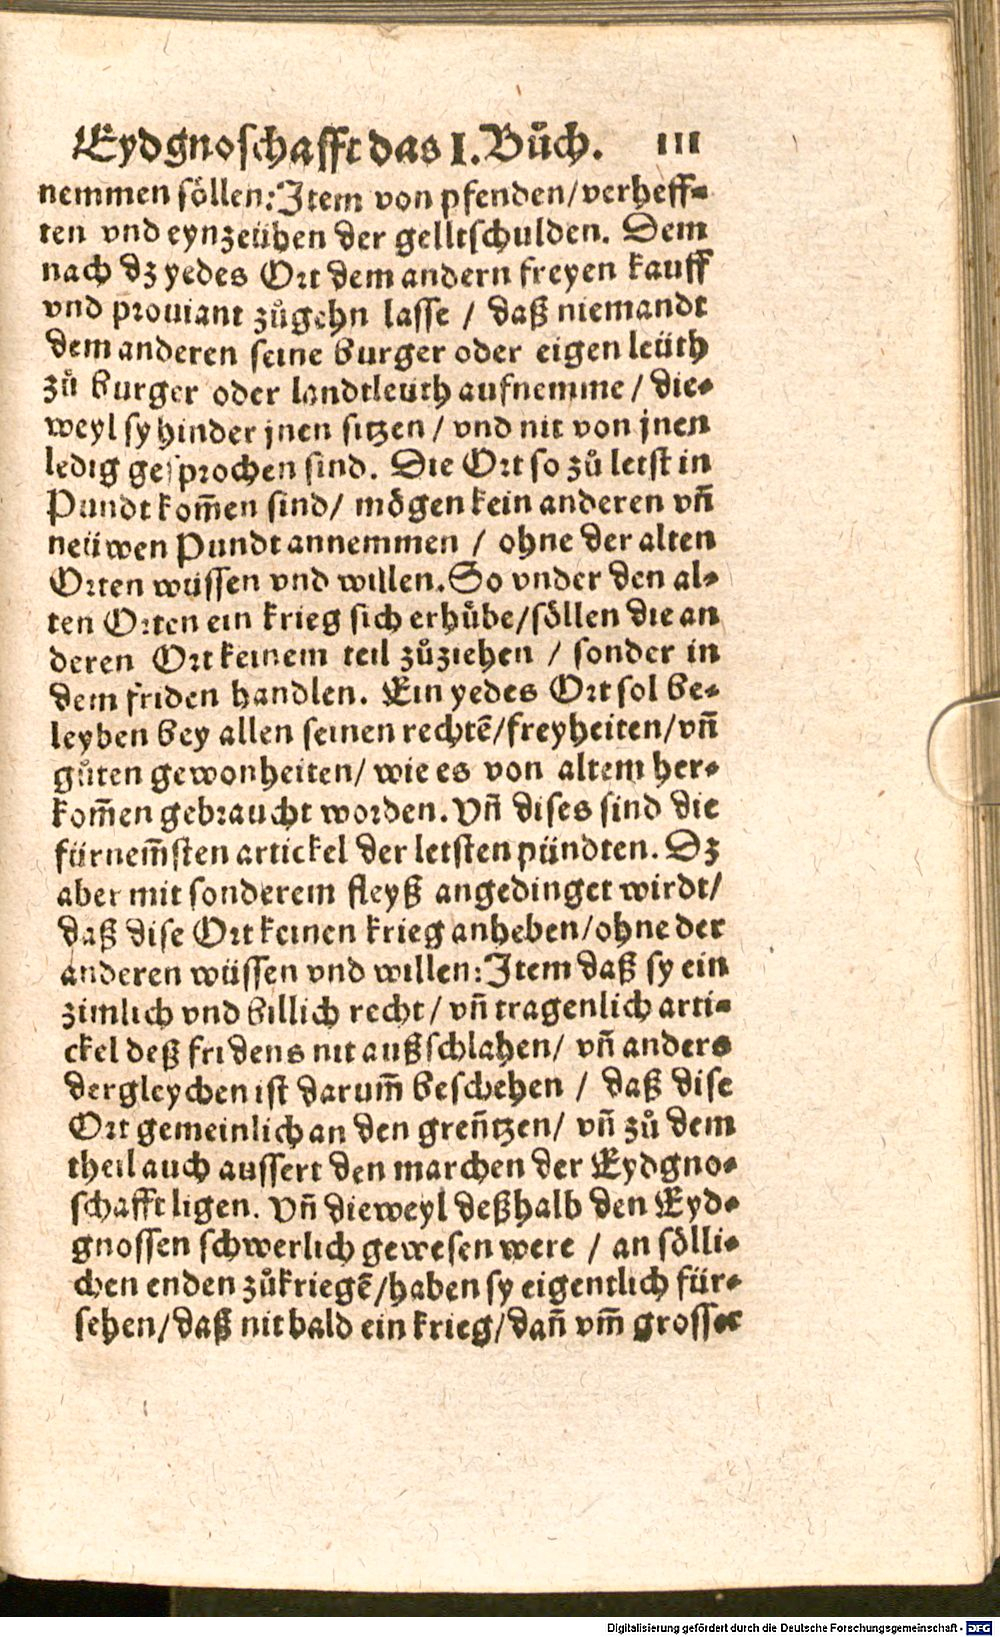 Eydgnoschafft das I. Bůch. 111
nemmen söllen: Item von pfenden/ verheff⸗
ten vnd eynzeühen der gelltschulden. Dem
nach dz yedes Ort dem andern freyen kauff
vnd prouiant zůgehn lasse / daß niemandt
dem anderen seine burger oder eigen leüth
zů burger oder landtleüth aufnemme / die⸗
weyl sy hinder jnen sitzen / vnd nit von jnen
ledig gesprochen sind. Die Ort so zů letst in
Pundt kom̃en sind/ mögen kein anderen vñ
neüwen Pundt annemmen / ohne der alten
Orten wüssen vnd willen. So vnder den al⸗
ten Orten ein krieg sich erhůbe/ söllen die an
deren Ort keinem teil zůziehen / sonder in
dem friden handlen. Ein yedes Ort sol be⸗
leyben bey allen seinen rechtē/ freyheiten/ vñ
gůten gewonheiten/ wie es von altem her⸗
kom̃en gebraucht worden. Vñ dises sind die
fürnem̃sten artickel der letsten pündten. Dz
aber mit sonderem fleyß angedinget wirdt/
daß dise Ort keinen krieg anheben/ ohne der
anderen wüssen vnd willen: Item daß sy ein
zimlich vnd billich recht / vñ tragenlich arti⸗
ckel deß fridens nit außschlahen/ vñ anders
dergleychen ist darum̃ beschehen / daß dise
Ort gemeinlich an den greñtzen/ vñ zů dem
theil auch aussert den marchen der Eydgno⸗
schafft ligen. Vñ dieweyl deßhalb den Eyd⸗
gnossen schwerlich gewesen were / an sölli⸗
chen enden zůkriegē/ haben sy eigentlich für⸗
sehen/ daß nit bald ein krieg/ dañ vm̃ grosser
Digitalisierung gefördert durch die Deutsche Forschungsgemeinschaft - DFG